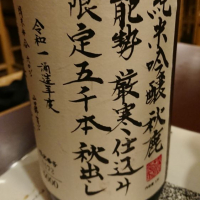 純米吟醸 秋鹿
能勢 厳寒仕込み
限定五千本 秋出し
令和一酒造年度